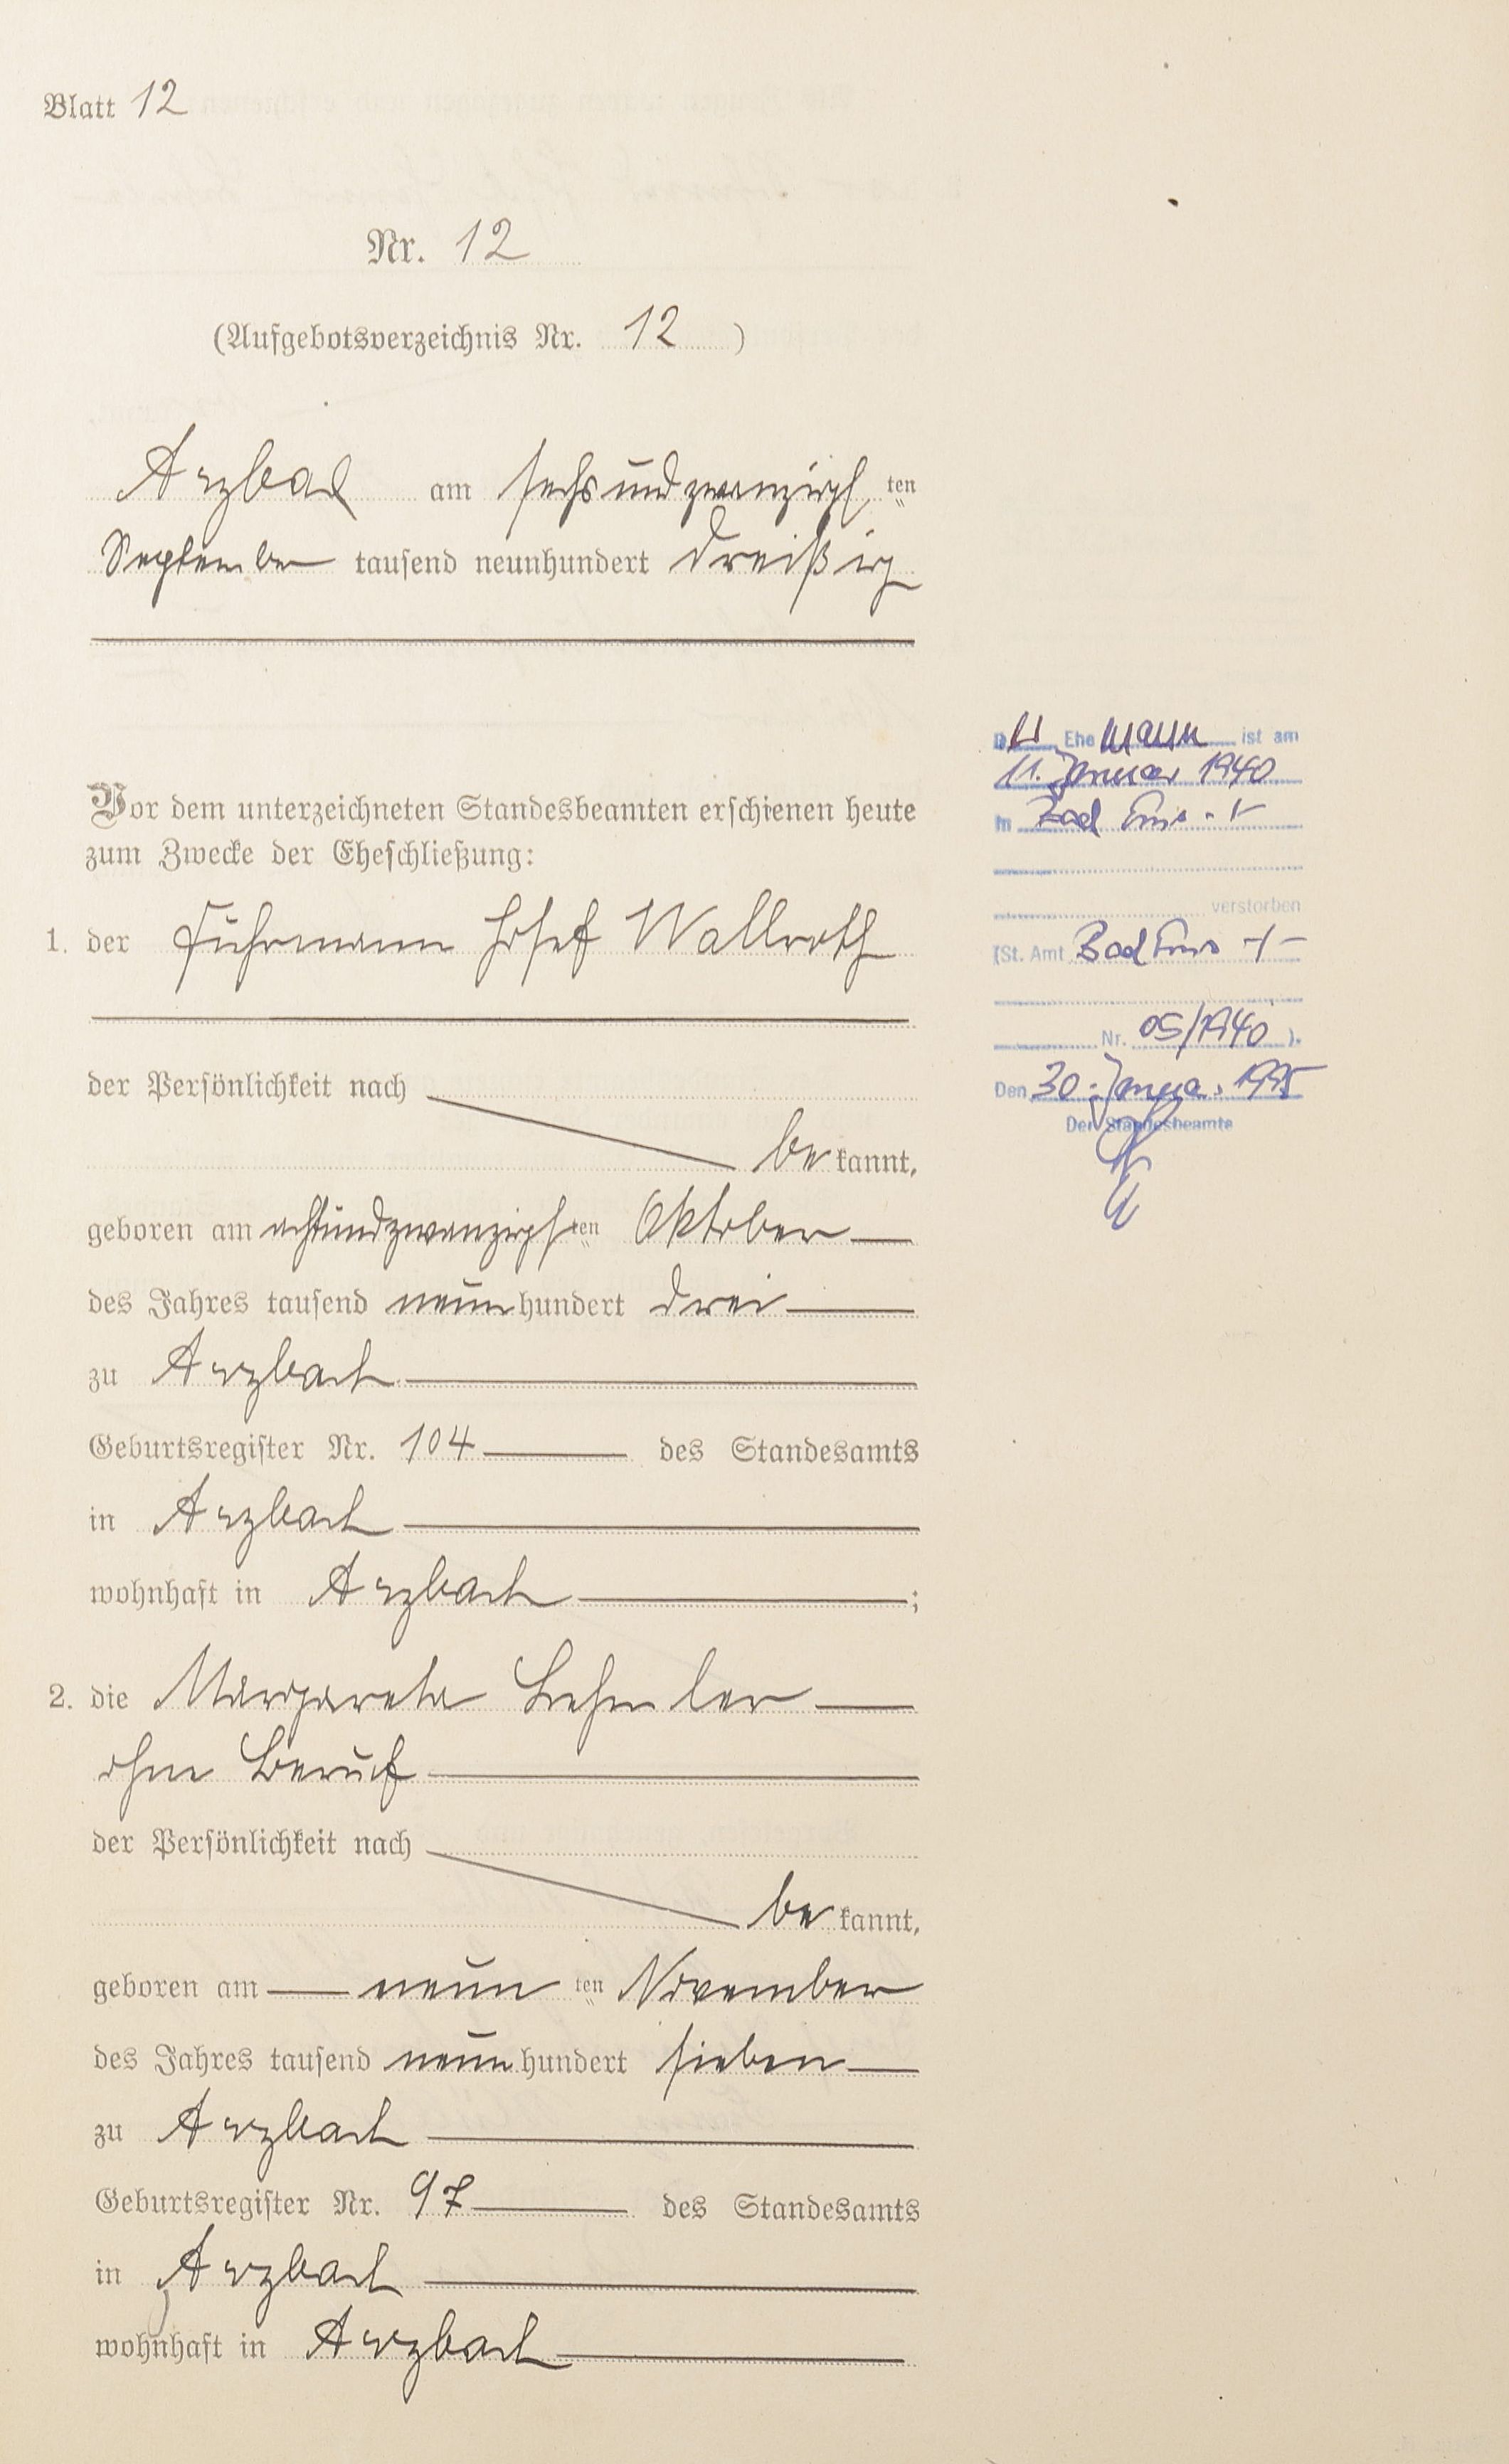 Blatt 12
Nr. 12
(Aufgebotsverzeichnis Nr. 12)
Arzbach am sechsundzwanzigsten
September tausend neunhundert dreißig
Vor dem unterzeichneten Standesbeamten erschienen heute
zum Zwecke der Eheschließung:
1. der Fuhrmann Josef Wallroth
der Persönlichkeit nach
bekannt,
geboren am achtundzwanzigsten Oktober
des Jahres tausend neunhundert drei
zu Arzbach
Geburtsregister Nr. 104 des Standesamts
in Arzbach
wohnhaft in Arzbach;
2. die Margareta Lehmler
ohne Beruf
der Persönlichkeit nach
bekannt,
geboren am neunten November
des Jahres tausend neunhundert sieben
zu Arzbach
Geburtsregister Nr. 97 des Standesamts
in Arzbach
wohnhaft in Arzbach
Der Ehemann ist am
11. Januar 1940
in Bad Ems
verstorben
(St. Amt Bad Ems
Nr. 05/1940).
Den 30. Januar 1995
Der Standesbeamte